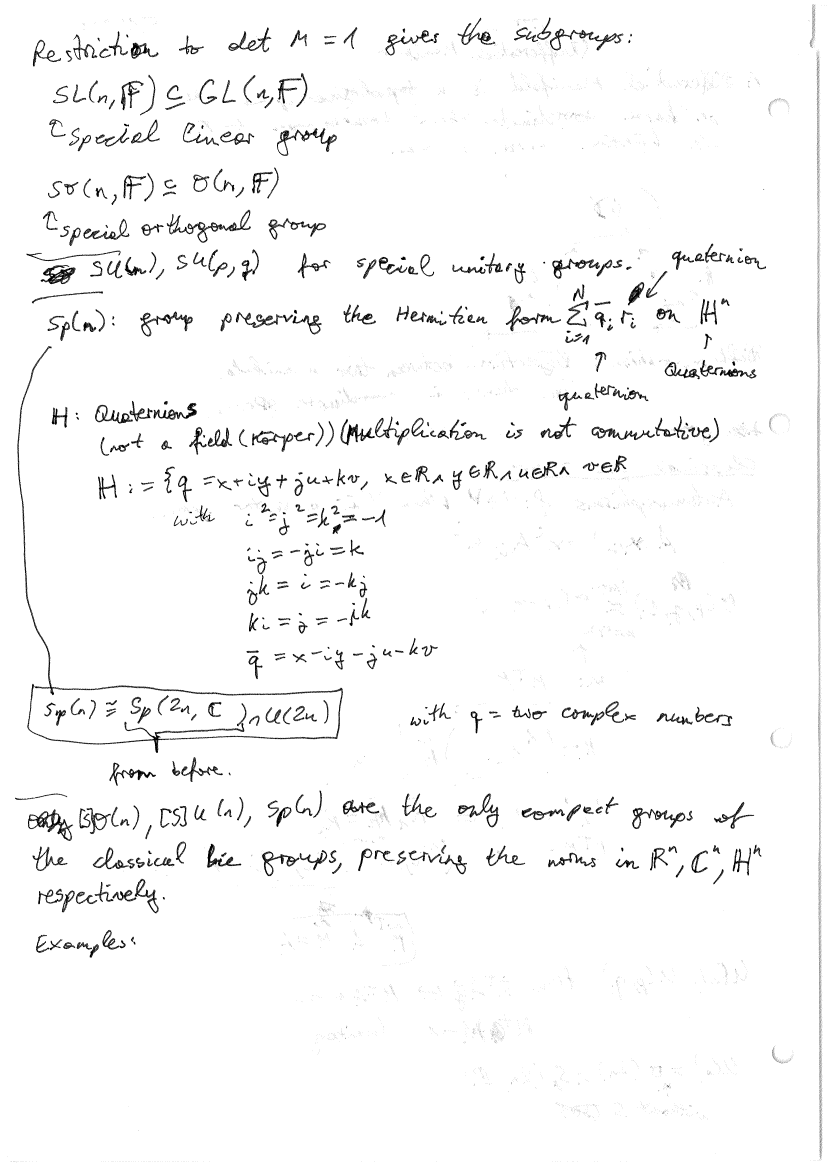 Restriction to det M = 1 gives the subgroups:
SL(n,𝔽) ⊆ GL(n,𝔽)
↑ special linear group
SO(n,𝔽) ⊆ O(n,𝔽)
↑ special orthogonal group
SU(n), SU(p,q) for special unitary groups. quaternion
Sp(n): group preserving the Hermitien form ∑_{i=1}^{N} q̄_i r_i on ℍ^n
↑ quaternion
↑ Quaternions
ℍ: Quaternions
(not a field (Körper)) (Multiplication is not commutative)
ℍ := {q = x+iy+ju+kv, x∈ℝ ∧ y∈ℝ ∧ u∈ℝ ∧ v∈ℝ
with i²=j²=k²=-1
ij = -ji = k
jk = i = -kj
ki = j = -ik
q̄ = x-iy-ju-kv
Sp(n) ≅ Sp(2n, ℂ) ∩ U(2n) with q = two complex numbers
from before.
[S]O(n), [S]U(n), Sp(n) are the only compact groups of
the classical Lie groups, preserving the norms in ℝ^n, ℂ^n, ℍ^n
respectively.
Examples: